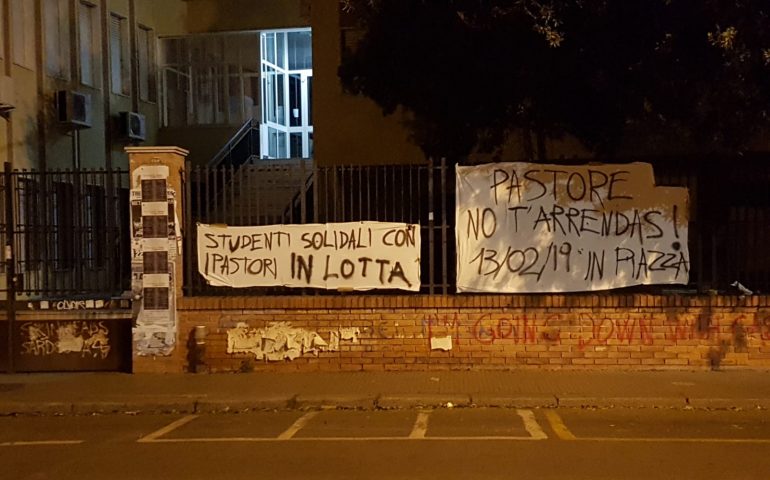 STUDENTI SOLIDALI CON
I PASTORI IN LOTTA
PASTORE
NO T'ARRENDAS!
13/02/19 IN PIAZZA
SKINHEADS
SARDI
I'M GOING DOWN WITH